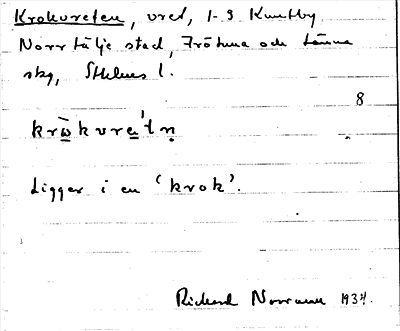 Krokvreten, vret, 1-3 Knutby
Norrtälje stad, Frötuna och Länna
skg, Sthlms l.
8
krὼkvrea'tn̥
Ligger i en 'krok'.
Richard Norrman 1934.